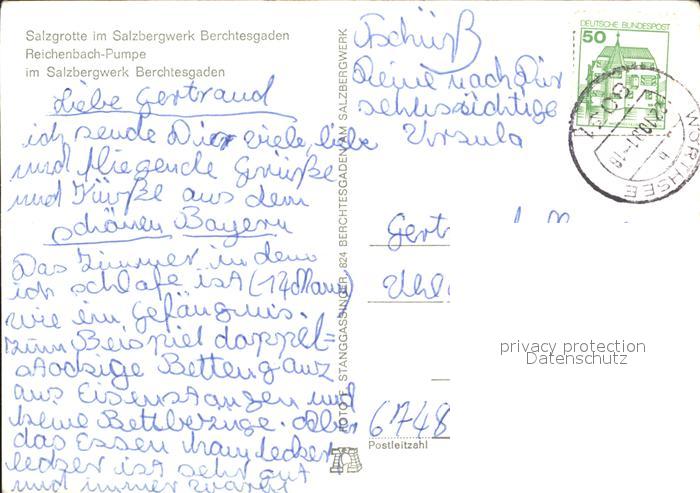 Salzgrotte im Salzbergwerk Berchtesgaden
Reichenbach-Pumpe
im Salzbergwerk Berchtesgaden
Liebe Gertraud
ich sende Dir viele, liebe
und fliegende Grüße
und Küsse aus dem
schönen Bayern
Das Zimmer in dem
ich schlafe ist (14 Mann)
wie ein Gefängnis.
Zum Beispiel doppel=
stockige Betten ganz
aus Eisenstangen und
keine Bettbezüge. Aber
das Essen ham lecker
lecker ist sehr gut
und immer
FOTO F. STANGGASSINGER, 824 BERCHTESGADEN AM SALZBERGWERK
Tschüß
Deine nach Dir
sehnsüchtige
Ursula
DEUTSCHE BUNDESPOST
50
WÖRTHSEE
Gert
6748
Postleitzahl
privacy protection
Datenschutz